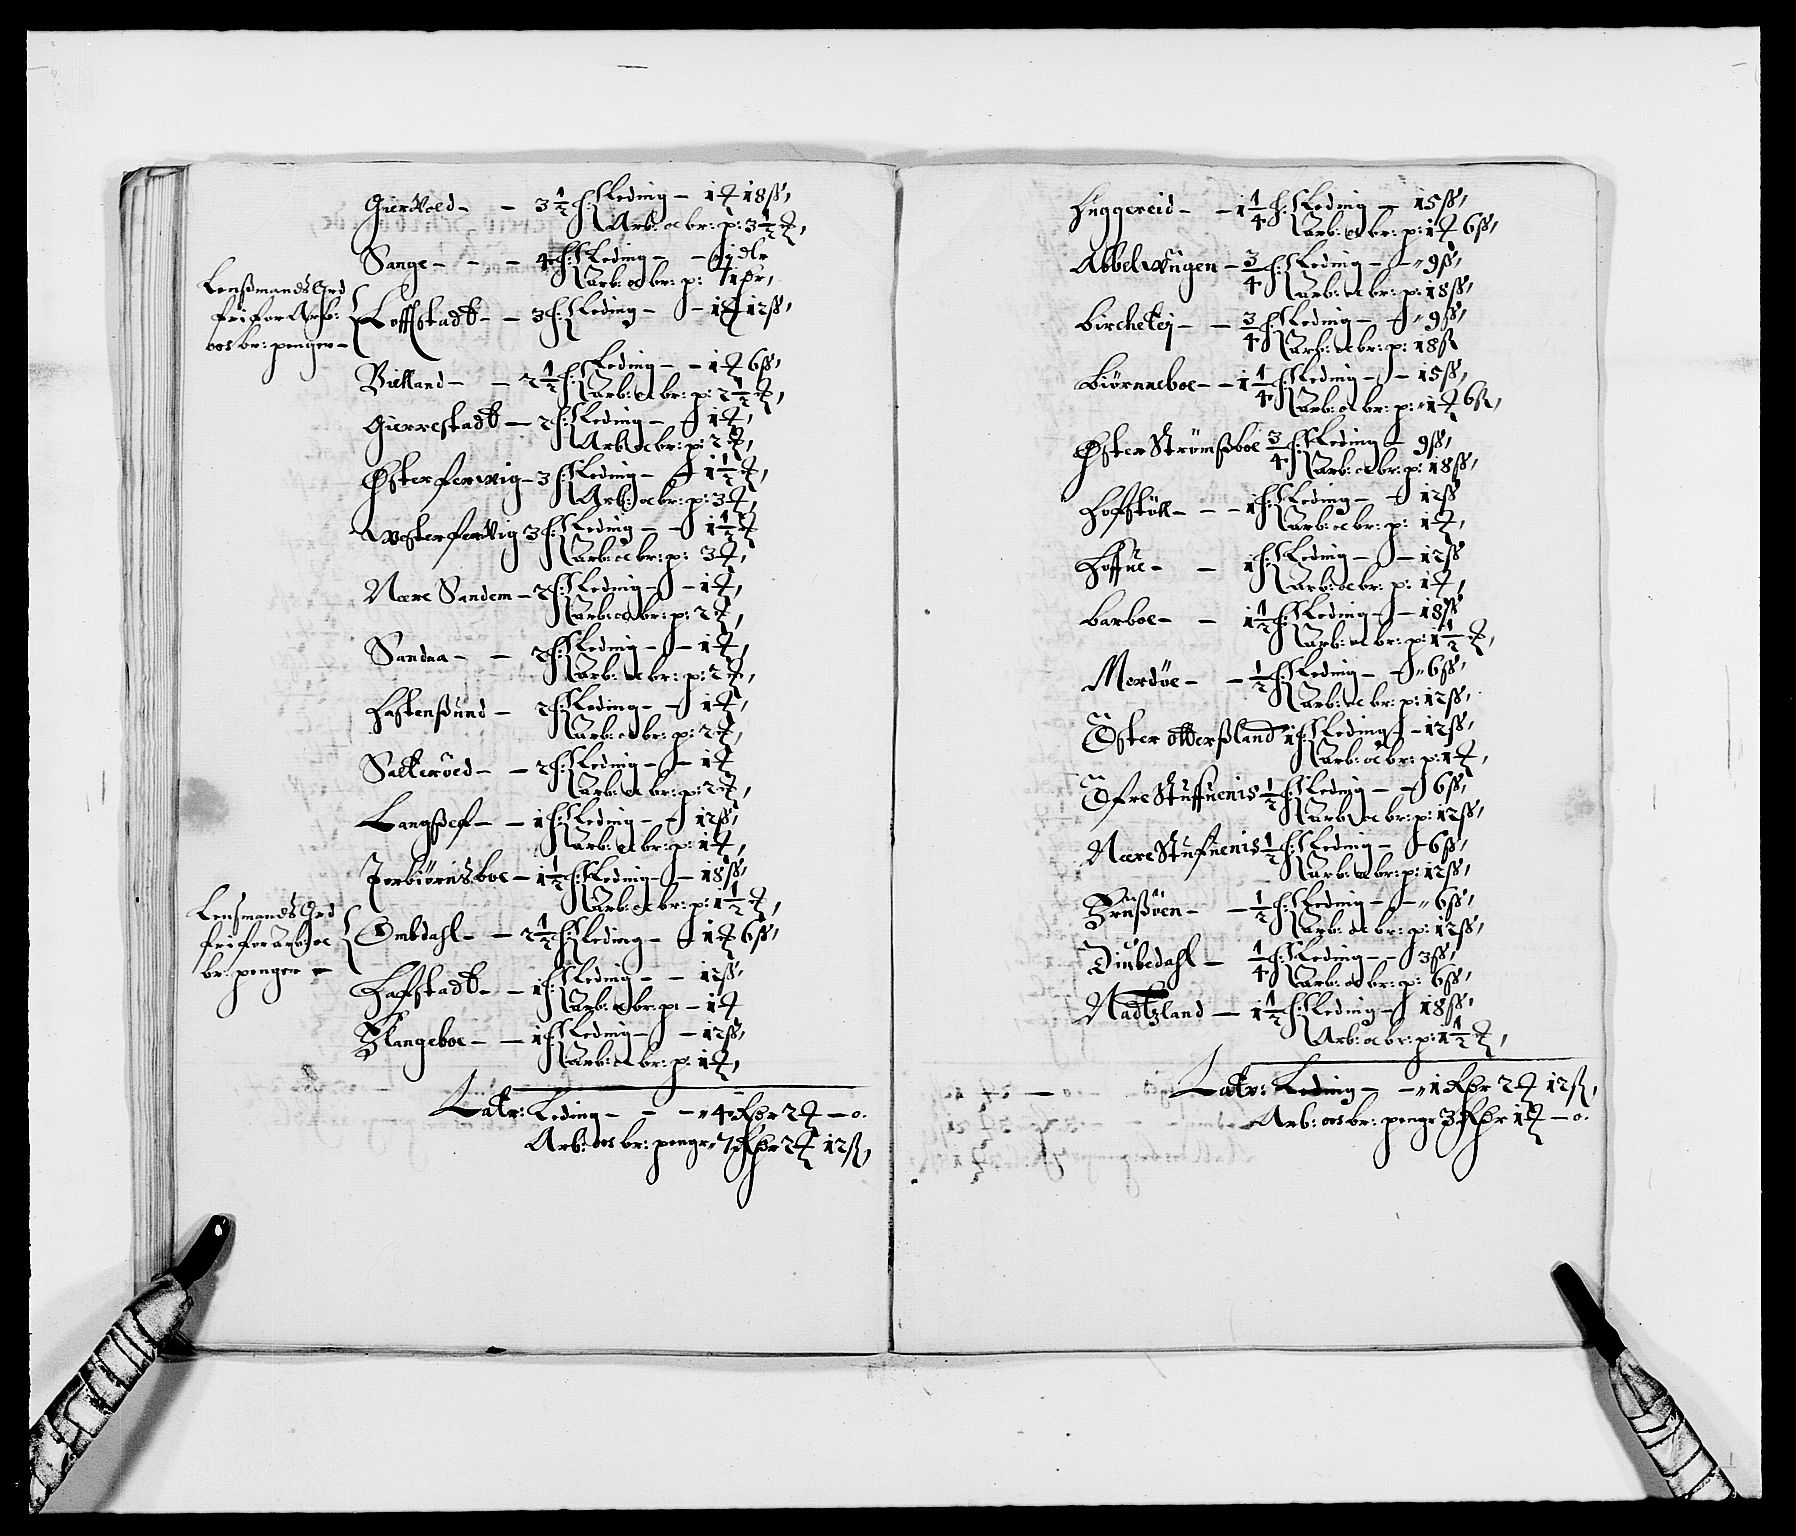 GierVold - - 3 1/2 h: Leding - 1 ℔ 18 ß,
Arb: oc br: p: 3 1/2 ℔,
Sange - - - 4 h: Leding - - 1 dlr
arb: oc br: p: 1 dr,
Lenßmands Grd
fri for Arb:
oes br: penger -
Loffstadt - - 3 h: Leding - - 1 ℔ 12 ß,
Vielland - - 2 1/2 h: Leding - - 1 ℔ 6 ß,
arb: oc br: p: 2 1/2 ℔,
Gierrestadt - 2 h: Leding - - 1 ℔,
Arb: oc br: p: 2 ℔,
Østerferwig - 3 h: Leding - - 1 1/2 ℔,
Arb: oc br: p: 3 ℔,
WesterferVig 3 h: Leding - - 1 1/2 ℔
arb: oc br: p: 3 ℔,
Nære Sandem - 2 h: Leding - - 1 ℔,
arb: oc br: p: 2 ℔,
Sandnæ - - 2 h: Leding - - 1 ℔,
arb: oc br: p: 2 ℔,
Hastenßund - 2 h: Leding - - 1 ℔,
arb: oc br: p: 2 ℔,
Salterøed - - 2 h: Leding - - 1 ℔
arb: oc br: p: 2 ℔,
Langsæf - - 1 h: Leding - - 12 ß,
arb: oc br: p: 1 ℔,
Torbiørnsboe - 1 1/2 h: Leding - - 18 ß,
arb: oc br: p: 1 1/2 ℔,
Lensmands Grd
fri for arb: oc
br: penger -
Ombdahl - - 2 1/2 h: Leding - - 1 ℔ 6 ß,
Haffstadt - - 1 h: Leding - - 12 ß,
arb: oc br: p: - 1 ℔
Klangeboe - - 1 h: Leding - - 12 ß,
arb: oc br: p: 1 ℔,
Latr: Leding - - - 4 Rdr 2 ℔ - 0.
Arb: oes br: penger 7 Rdr 2 ℔ 12 ß,
Huggereid - - 1 1/4 h: Leding - - 15 ß,
arb: oc br: p: 1 ℔ 6 ß,
Abbelwugen - 3/4 h: Leding - - 9 ß,
arb: oc br: p: 18 ß,
Bircheley - - 3/4 h: Leding - - 9 ß,
arb: oc br: p: 18 ß
Biørnneboe - - 1 1/4 h: Leding - - 15 ß,
arb: oc br: p: 1 ℔ 6 ß,
Øster Strømßboe 3/4 h: Leding - 9 ß,
arb: oc br: p: 18 ß,
Hoffstøll - - - 1 h: Leding - - 12 ß
arb: oc br: p: 1 ℔,
Hoffue - - 1 h: Leding - - 12 ß
arb: oc br: p: 1 ℔,
Barboe - - 1 1/2 h: Leding - - 18 ß
arb: oc br: p: 1 1/2 ℔,
Merdøe - - 1/2 h: Leding - - 6 ß,
arb: oc br: p: 12 ß,
Øster otterßland 1 h: Leding - - 12 ß,
arb: oc br: p: 1 ℔,
Øfre Stuffuenis 1/2 h: Leding - - 6 ß,
arb: oc br: p: 12 ß,
Nære Stufuenis 1/2 h: Leding - - 6 ß,
arb: oc br: p: 12 ß,
Krußøen - - 1/2 h: Leding - - 6 ß,
arb: oc br: p: 12 ß,
Diubedahl - 1/4 h: Leding - - 3 ß,
arb: oc br: p: 6 ß,
Nadtzland - 1 1/2 h: Leding - - 18 ß,
Arb: oc br: p: 1 1/2 ℔,
Latr: Leding - - 1 Rdr 2 ℔ 12 ß,
Arb: oes br: penger 3 Rdr 1 ℔ - 0.